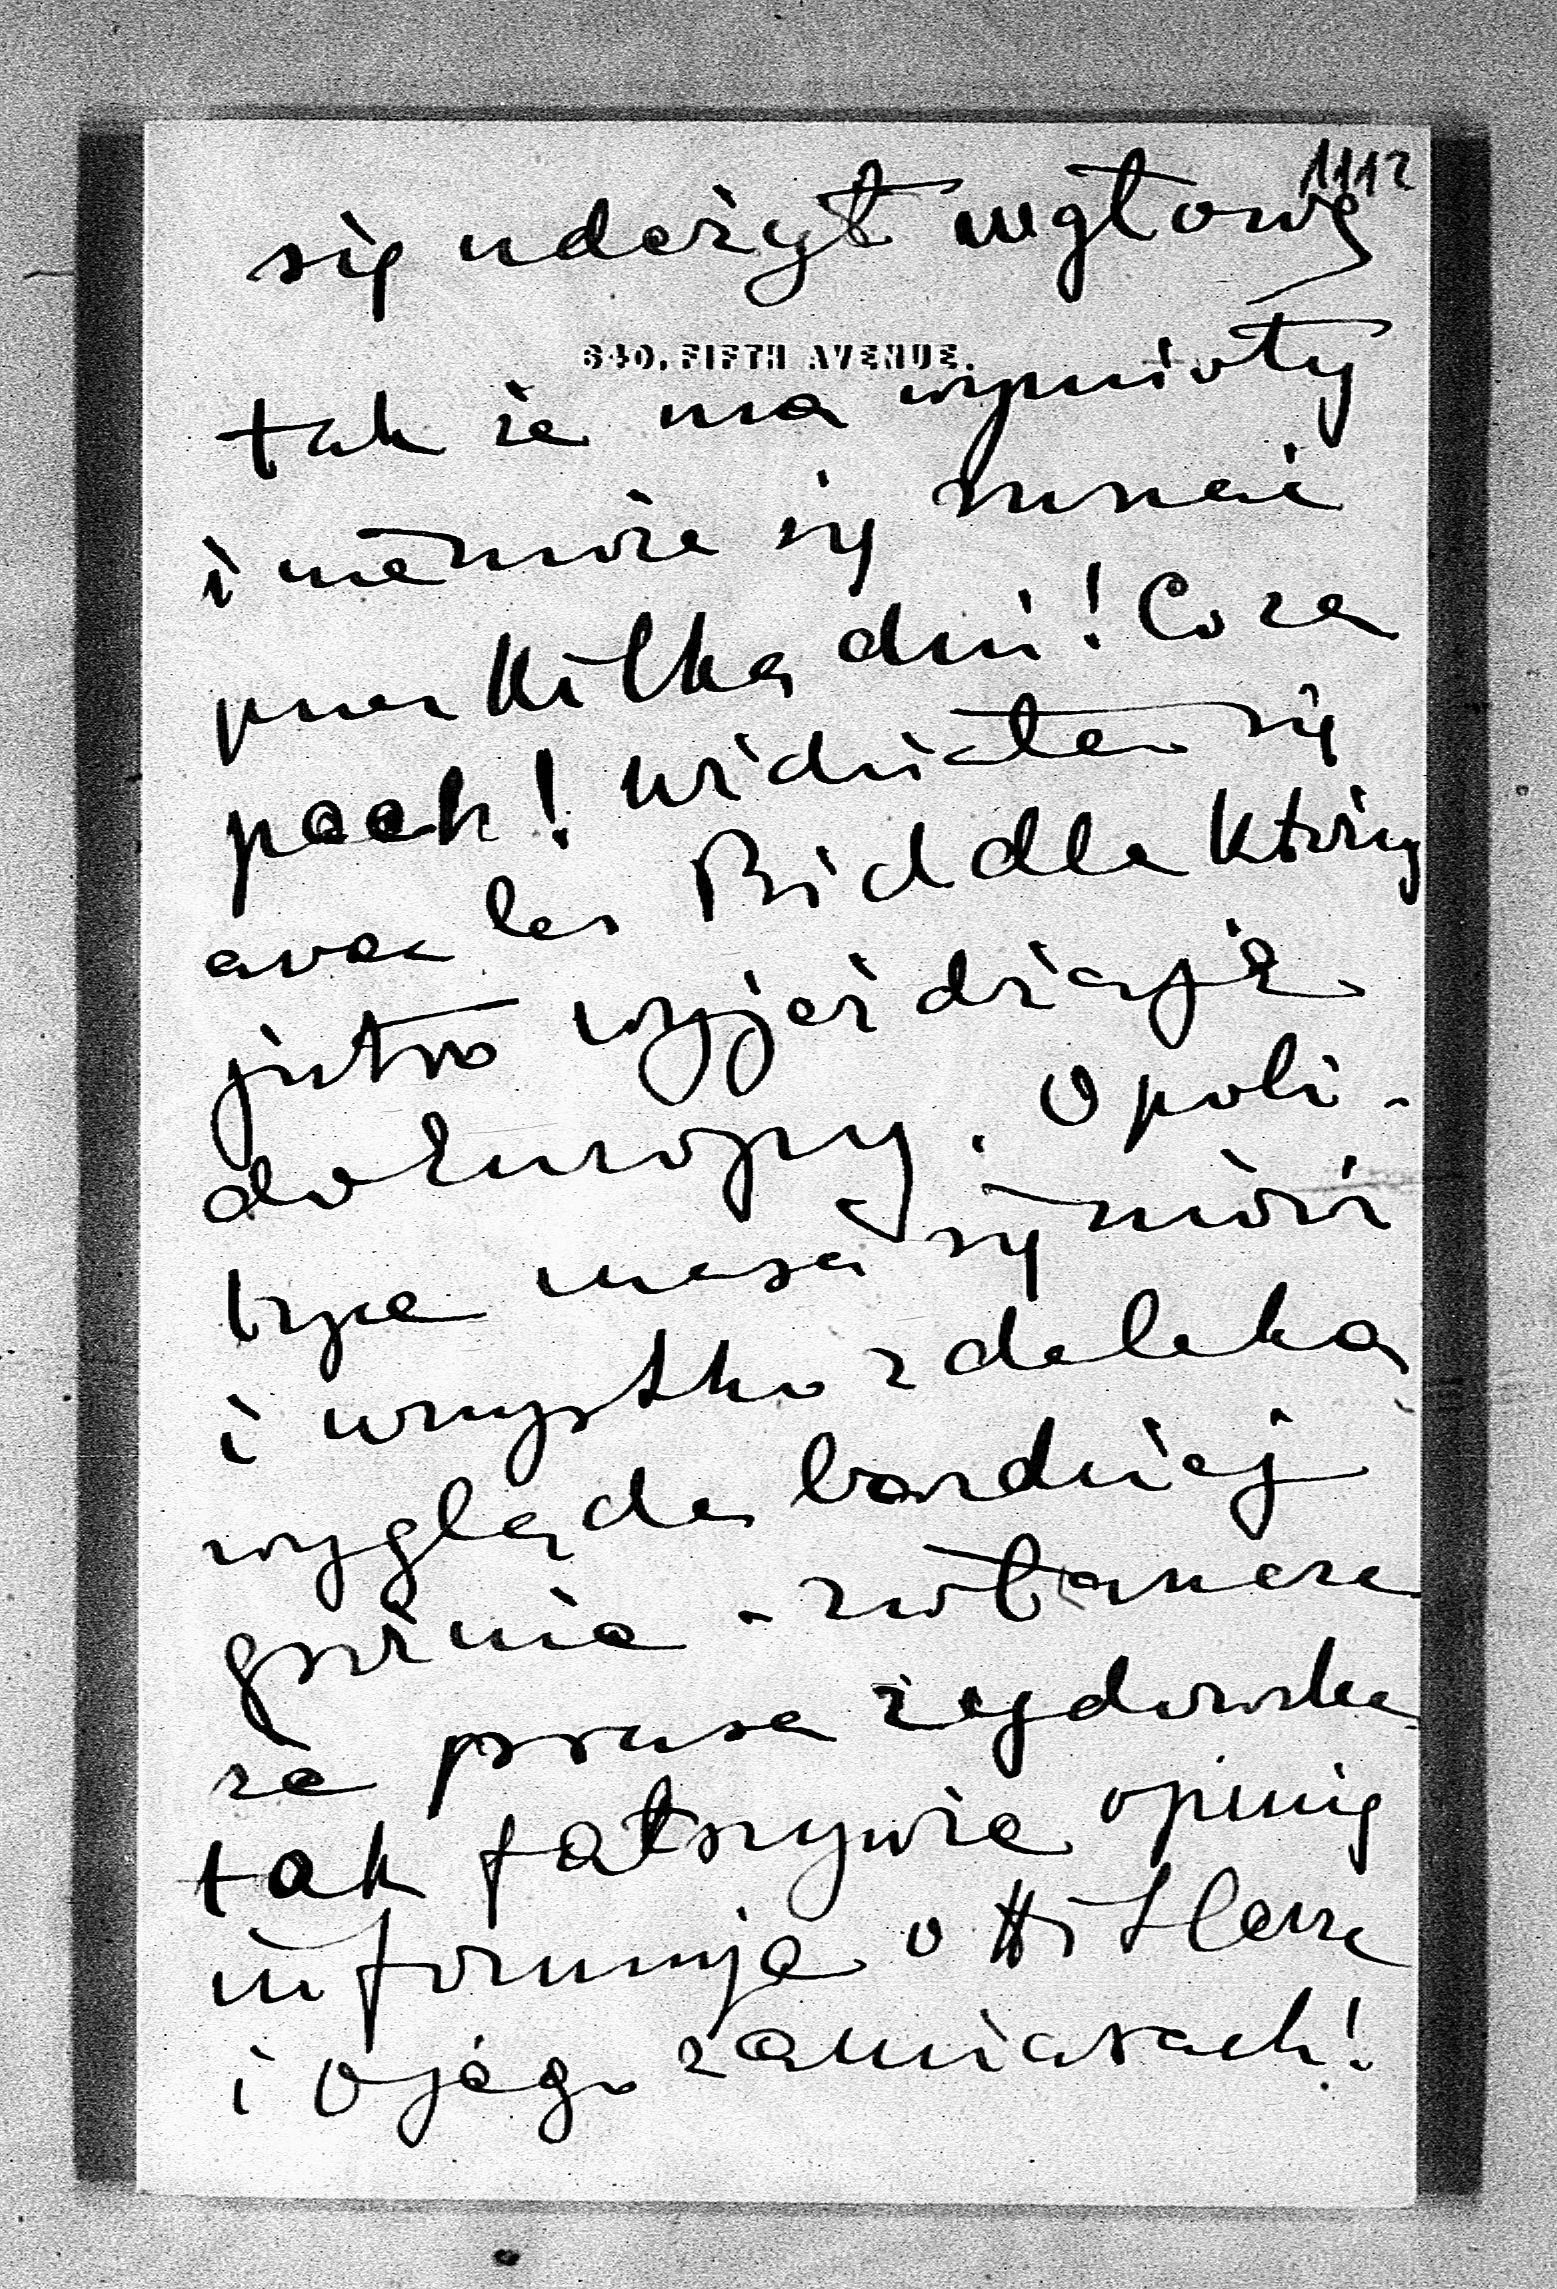 1112
się uderzył w głowę
640, FIFTH AVENUE.
tak że ma wymioty
i nie może się ruszać
przez kilka dni! Co za
pech! Widziałem się
avec les Biddle którzy
jutro wyjeżdżają
do Europy. O poli-
tyce masa się mówi
i wszystko z daleka
wygląda bardziej
groźnie - zwłaszcza
że prasa żydowska
tak fałszywie opinię
informuje o Hitlerze
i o jego zamiarach!